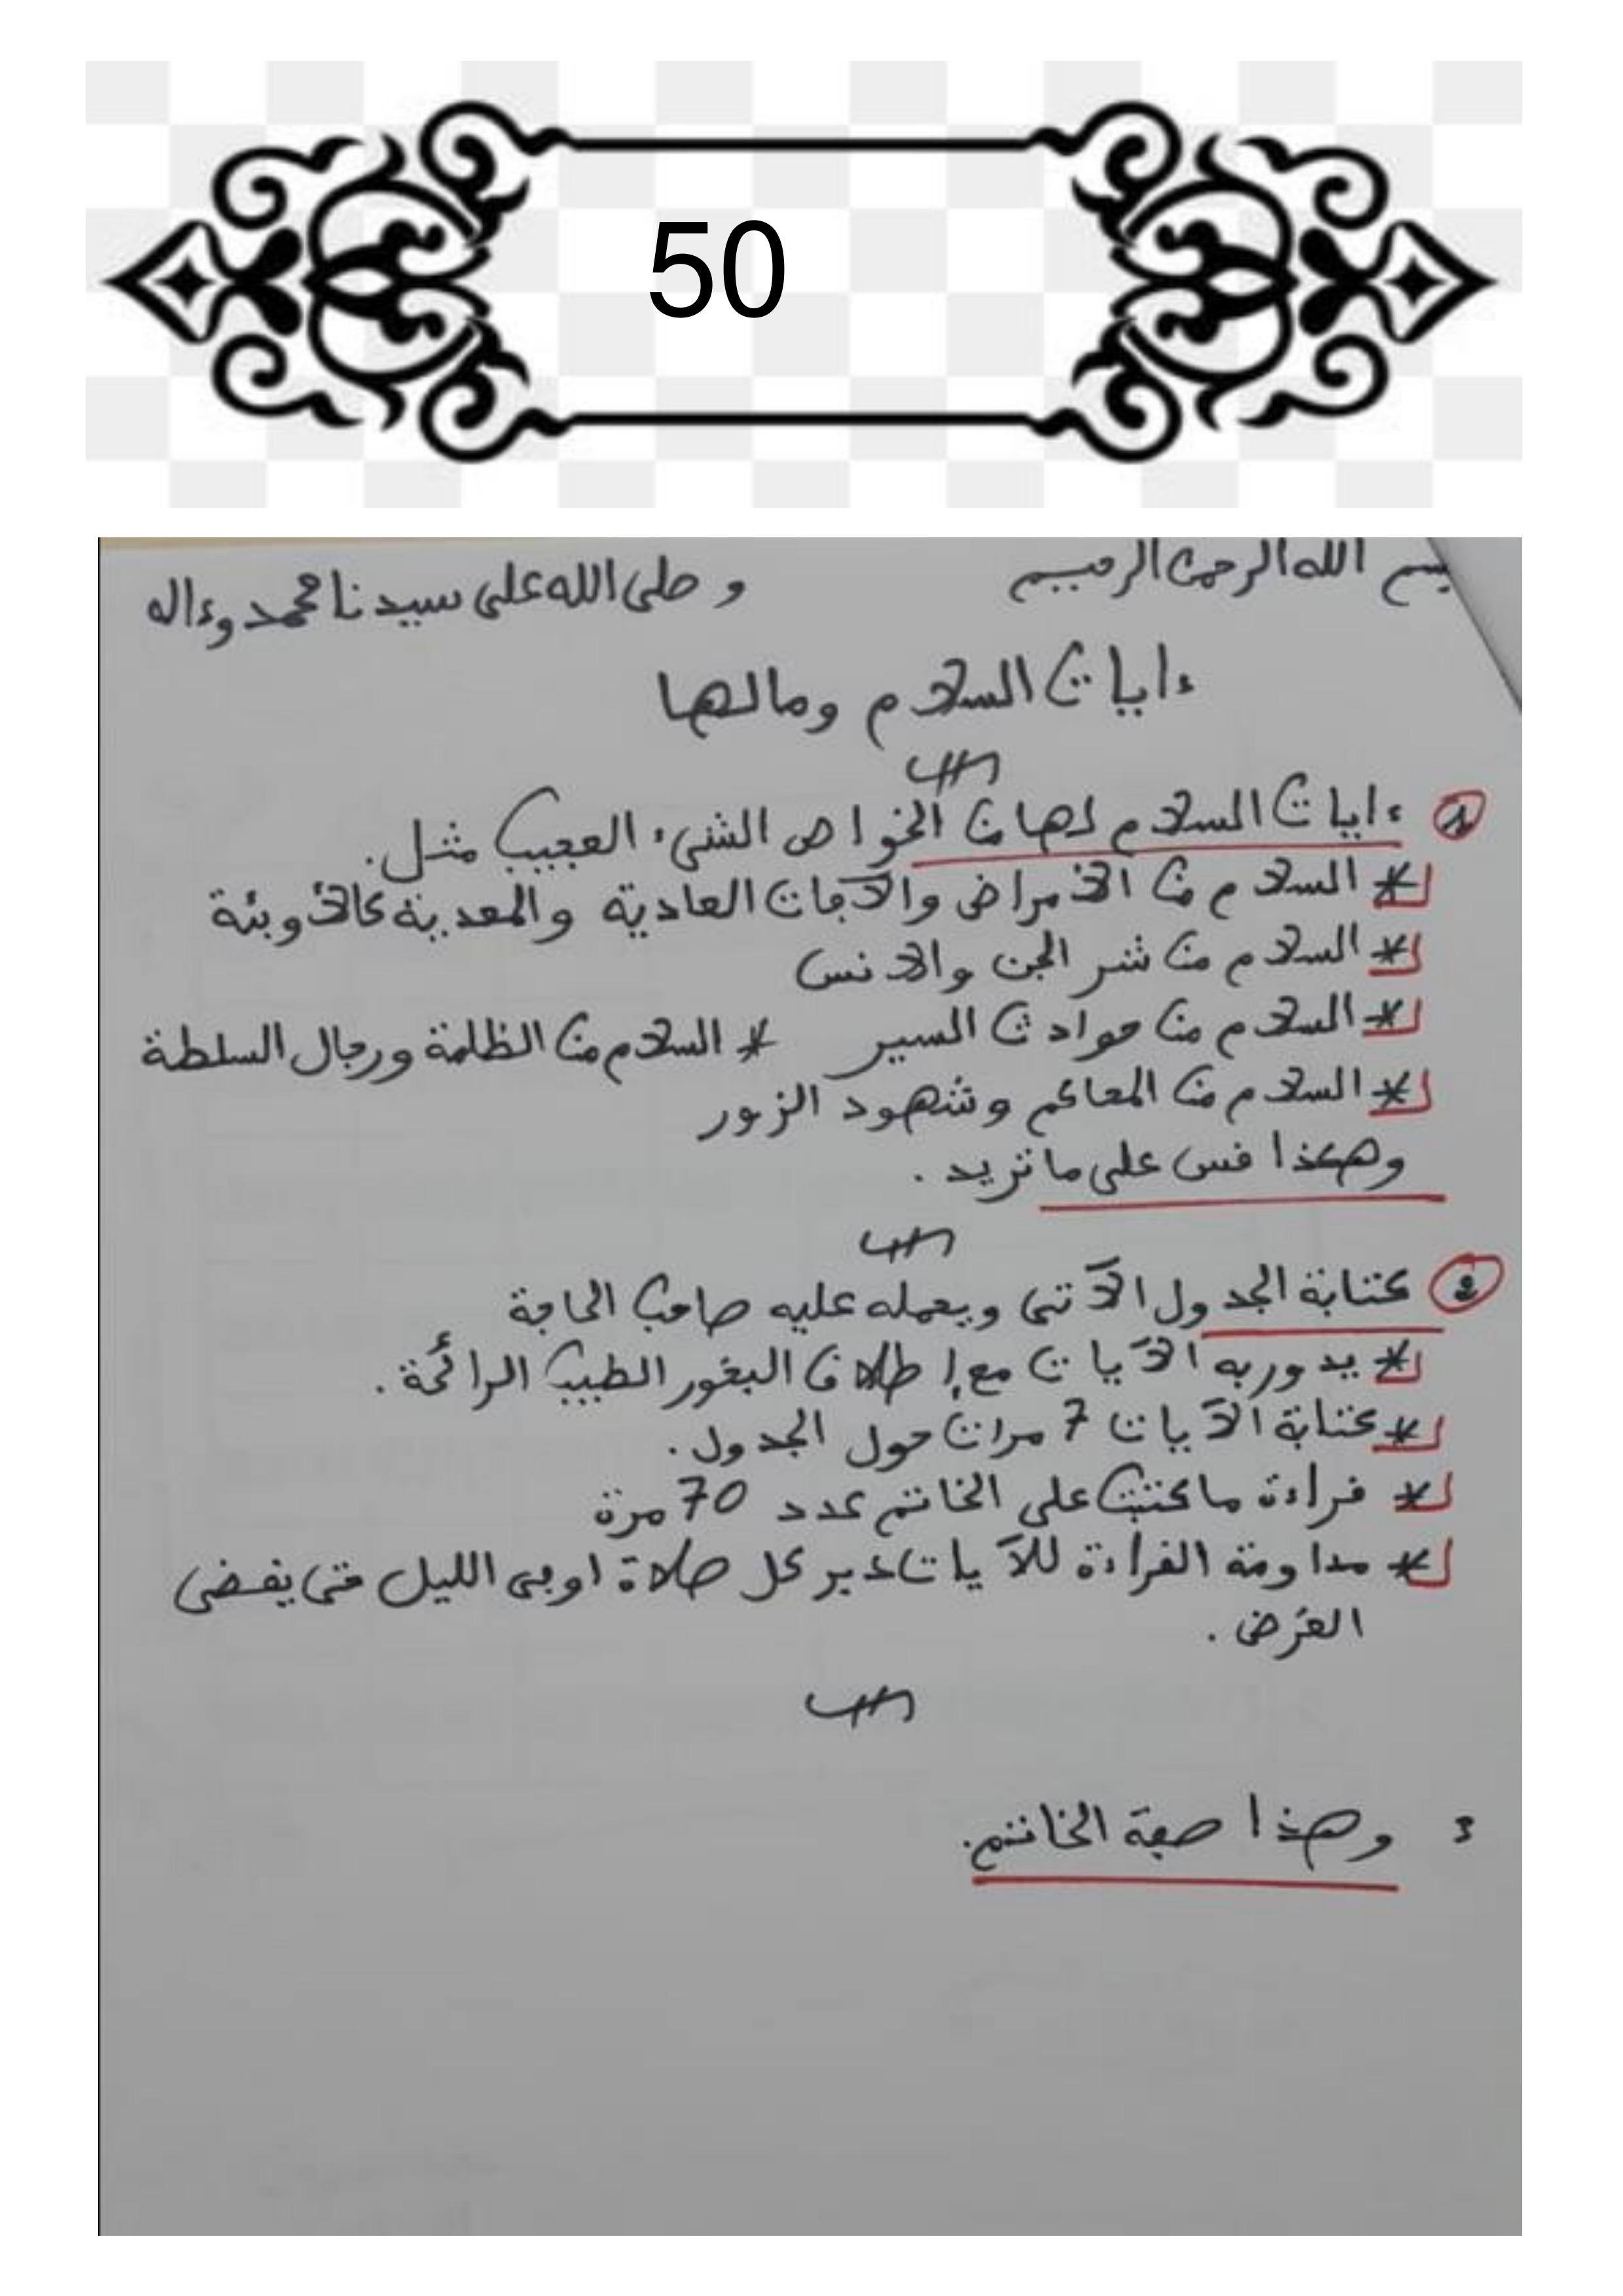 50
بسم الله الرحمن الرحيم وصلى الله على سيدنا محمد وءاله
ءايات السلام ومالها
1 ءايات السلام لها من الخواص الشيء العجيب مثل.
* السلام من الأمراض والآفات العادية والمعدية كالأوبئة
* السلام من شر الجن والانس
* السلام من حوادث السير * السلام من الظلمة ورجال السلطة
* السلام من المحاكم وشهود الزور
وهكذا قس على ما تريد .
2 كتابة الجدول الآتي ويعمله عليه صاحب الحاجة
* يدور به الآيات مع إطلاق البخور الطيب الرائحة .
* كتابة الآيات 7 مرات حول الجدول .
* قراءة ما كتبت على الخاتم عدد 70 مرة
* مداومة القراءة للآيات دبر كل صلاة او في الليل حتى يقضى
الغرض .
3 وهذا صفة الخاتم.